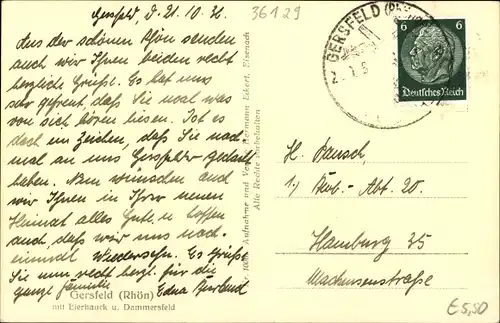 Gersfeld, d. 21.10.36
36129
Aus der schönen Rhön senden
auch wir Ihnen beiden recht
herzliche Grüße. Es hat uns
sehr gefreut, daß Sie noch was
von sich hören liesen. Ist es
doch ein Zeichen, daß Sie noch
mal an uns Gersfelder gedacht
haben. Nun wünschen auch
wir Ihnen in Ihrer neuen
Heimat alles Gute u. hoffen
auch daß wir uns noch
einmal Wiedersehn. Es grüßt
Sie nun recht herzl. für die
ganze Familie Edna
Gersfeld (Rhön)
mit Eierhauck u. Dammersfeld
Aufnahme und Hermann Eckert, Eisenach
Alle Rechte vorbehalten
GERSFELD (RHÖN)
6 6
Deutsches Reich
H. Rausch,
Abt. 20.
Hamburg 35
Machensenstraße
€ 5,50